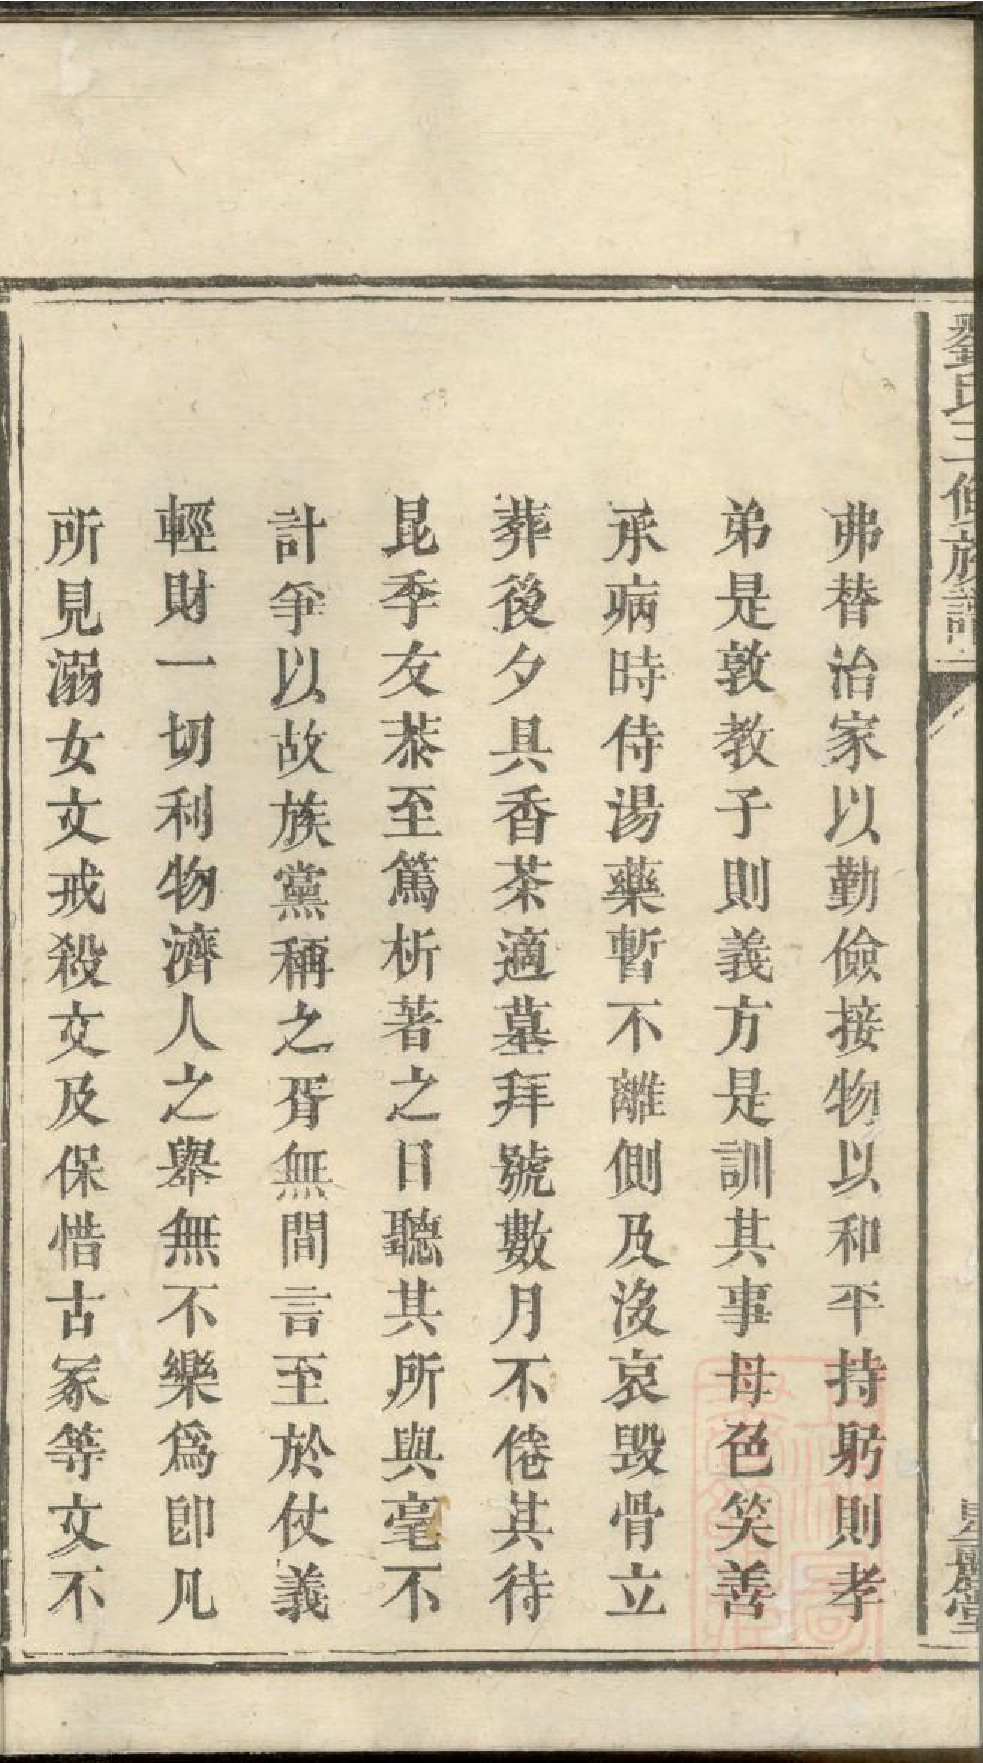 弗替治家以勤儉接物以和平持躬則孝
弟是敦教子則義方是訓其事母色笑善
承病時侍湯藥暫不離側及沒哀毀骨立
葬後夕具香茶適墓拜號數月不倦其待
昆季友恭至篤析著之日聽其所與毫不
計爭以故族黨稱之胥無間言至於仗義
輕財一切利物濟人之舉無不樂爲卽凡
所見溺女文戒殺文及保惜古冢等文不